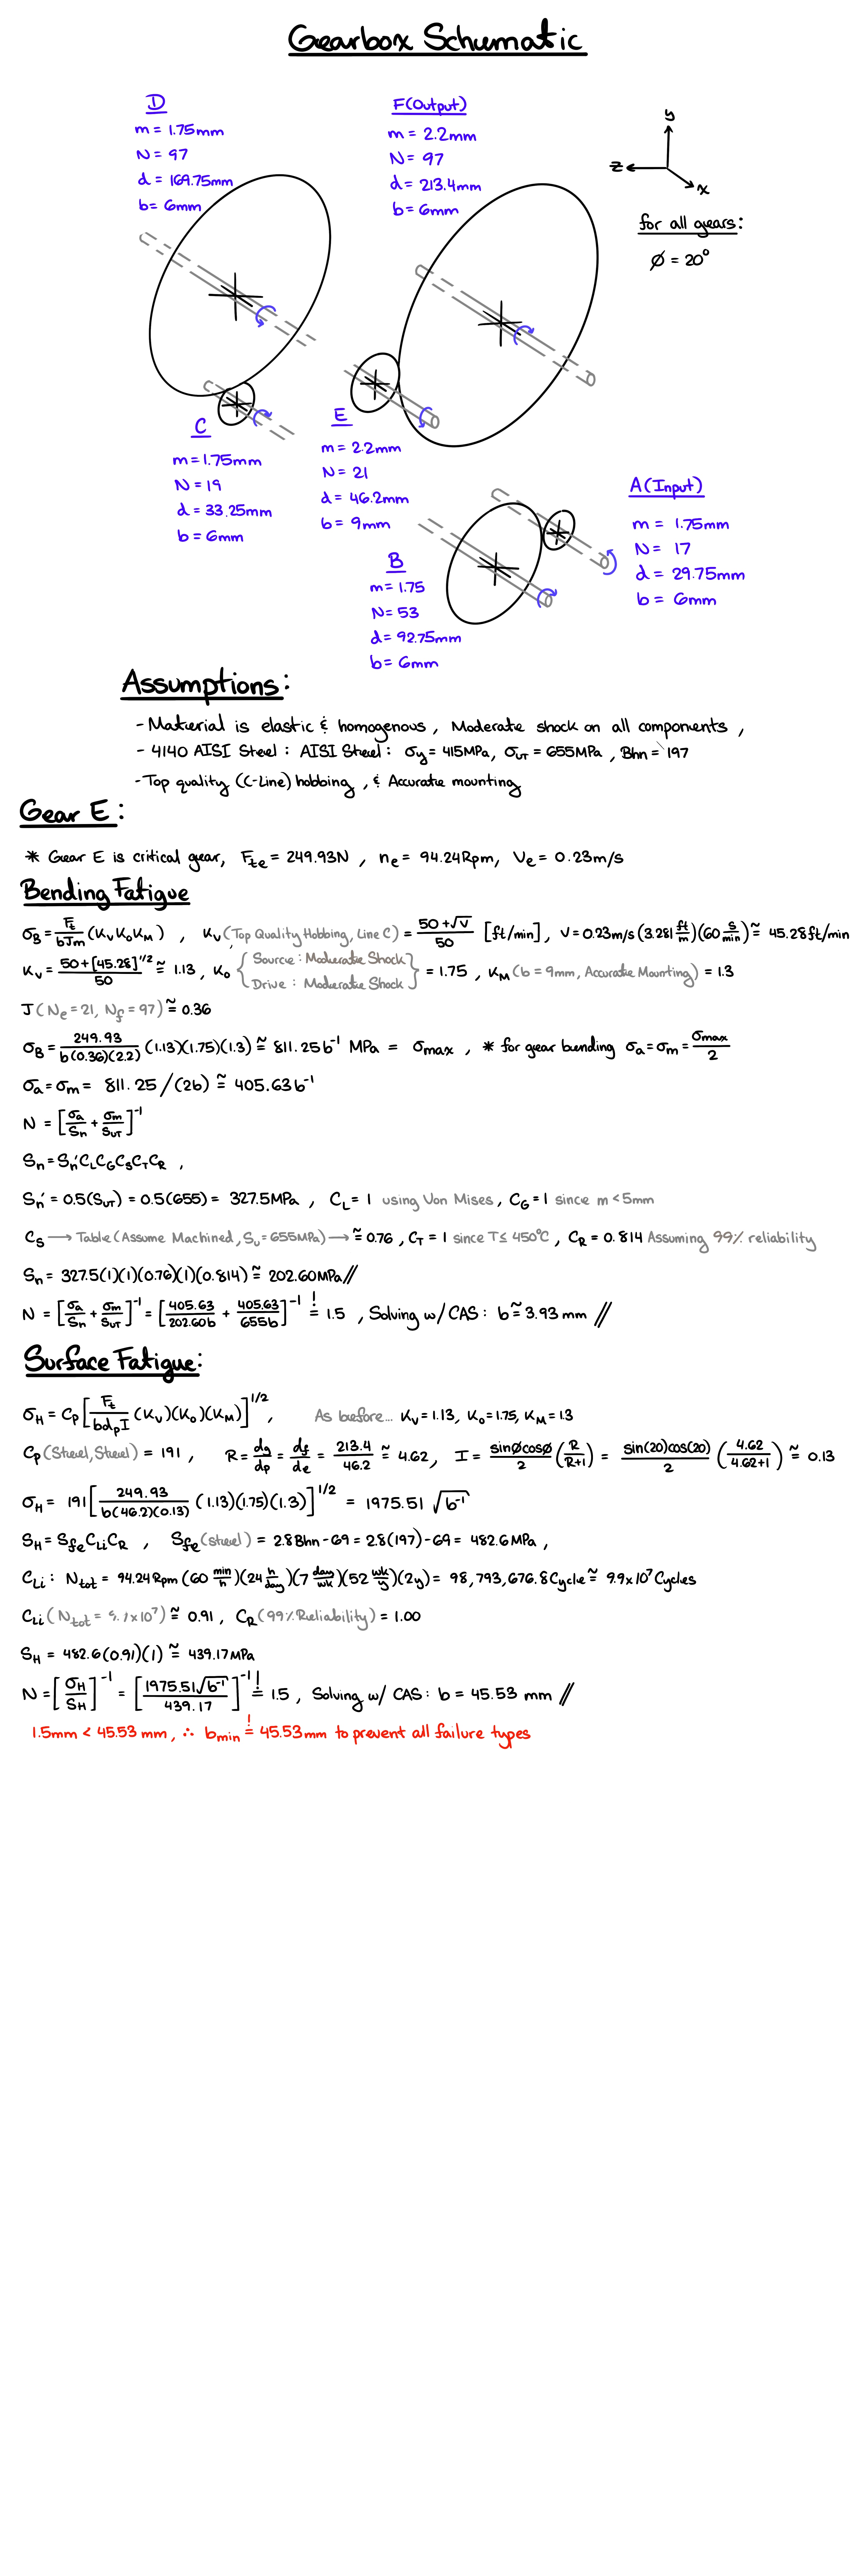 Gearbox Schematic
D
m = 1.75mm
N = 97
d = 169.75mm
b = 6mm
F(Output)
m = 2.2mm
N = 97
d = 213.4mm
b = 6mm
y
z
x
for all gears:
∅ = 20°
C
m = 1.75mm
N = 19
d = 33.25mm
b = 6mm
E
m = 2.2mm
N = 21
d = 46.2mm
b = 9mm
B
m = 1.75
N = 53
d = 92.75mm
b = 6mm
A(Input)
m = 1.75mm
N = 17
d = 29.75mm
b = 6mm
Assumptions:
- Material is elastic & homogenous, Moderate shock on all components,
- 4140 AISI Steel: AISI Steel: σy = 415MPa, σUT = 655MPa, Bhn = 197
- Top quality (C-Line) hobbing, & Accurate mounting
Gear E:
* Gear E is critical gear, Fte = 249.93N, ne = 94.24Rpm, Ve = 0.23m/s
Bending Fatigue
σB = Ft/bJm (KvKoKM), Kv(Top Quality Hobbing, Line C) = 50+√V/50 [ft/min], V = 0.23m/s (3.281 ft/m)(60 s/min) ≅ 45.28ft/min
Kv = 50+[45.28]^1/2/50 ≅ 1.13, Ko {Source: Moderate Shock Drive: Moderate Shock} = 1.75, KM (b = 9mm, Accurate Mounting) = 1.3
J(Ne = 21, Nf = 97) ≅ 0.36
σB = 249.93/b(0.36)(2.2) (1.13)(1.75)(1.3) ≅ 811.25b⁻¹ MPa = σmax, * for gear bending σa = σm = σmax/2
σa = σm = 811.25/(2b) ≅ 405.63b⁻¹
N = [σa/Sn + σm/SUT]⁻¹
Sn = Sn'CLCGCSCTCR,
Sn' = 0.5(SUT) = 0.5(655) = 327.5MPa, CL = 1 using Von Mises, CG = 1 since m < 5mm
CS → Table (Assume Machined, Su = 655MPa) → ≅ 0.76, CT = 1 since T ≤ 450°C, CR = 0.814 Assuming 99% reliability
Sn = 327.5(1)(1)(0.76)(1)(0.814) ≅ 202.60MPa//
N = [σa/Sn + σm/SUT]⁻¹ = [405.63/202.60b + 405.63/655b]⁻¹ =! 1.5, Solving w/ CAS: b ≅ 3.93 mm //
Surface Fatigue:
σH = Cp[Ft/bdpI (Kv)(Ko)(KM)]^1/2, As before... Kv = 1.13, Ko = 1.75, KM = 1.3
Cp(Steel, Steel) = 191, R = dg/dp = df/de = 213.4/46.2 ≅ 4.62, I = sin∅cos∅/2 (R/R+1) = sin(20)cos(20)/2 (4.62/4.62+1) ≅ 0.13
σH = 191[249.93/b(46.2)(0.13) (1.13)(1.75)(1.3)]^1/2 = 1975.51 √b⁻¹
SH = SfeCLiCR, Sfe(steel) = 2.8Bhn - 69 = 2.8(197) - 69 = 482.6MPa,
CLi: Ntot = 94.24Rpm (60 min/h)(24 h/day)(7 day/wk)(52 wk/y)(2y) = 98,793,676.8Cycle ≅ 9.9x10⁷Cycles
CLi(Ntot = 9.9x10⁷) ≅ 0.91, CR(99% Reliability) = 1.00
SH = 482.6(0.91)(1) ≅ 439.17MPa
N = [σH/SH]⁻¹ = [1975.51√b⁻¹/439.17]⁻¹ =! 1.5, Solving w/ CAS: b = 45.53 mm //
1.5mm < 45.53 mm, ∴ bmin =! 45.53mm to prevent all failure types